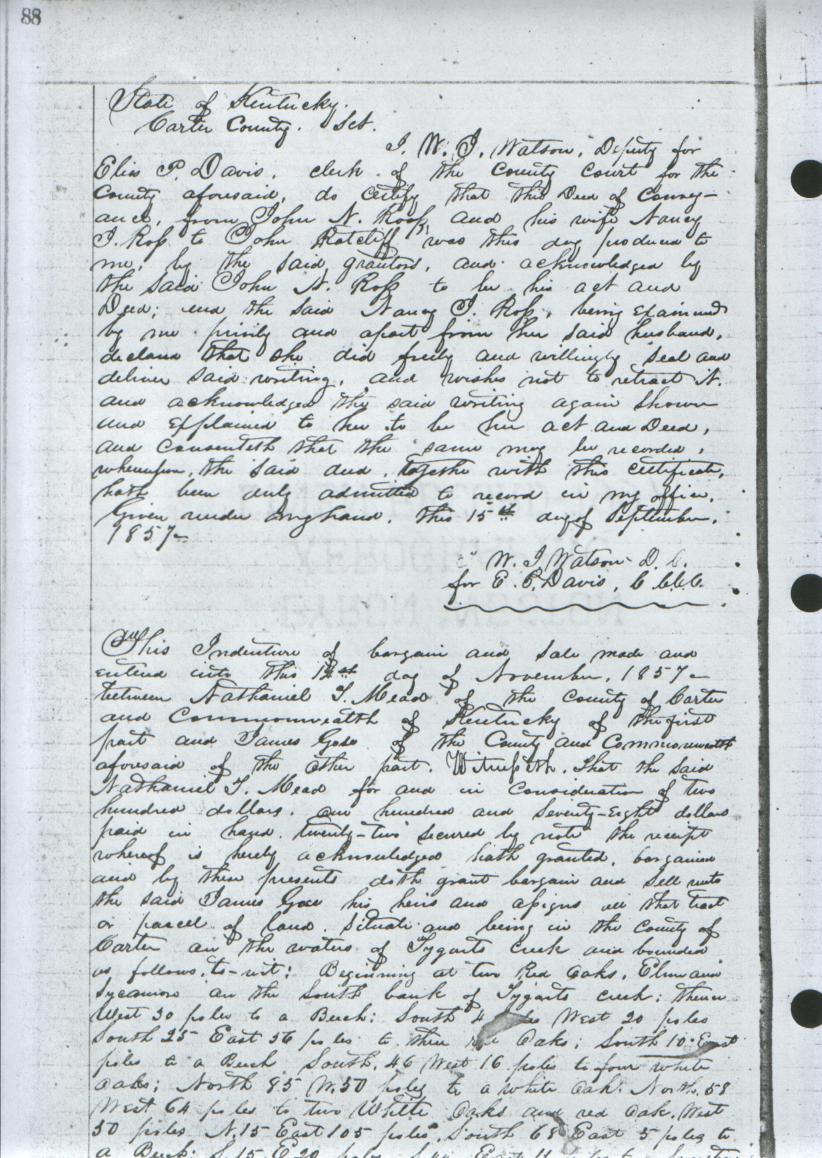 88
State of Kentucky.
Carter County. Sct.
I. W. J. Watson, Deputy for
Elias P. Davis, clerk of the County Court for the
County aforesaid, do certify that this Deed of Convey-
ance, from John N. Ross, and his wife Nancy
J. Ross to John Ratcliff was this day produced to
me, by the said grantors, and acknowledged by
the said John N. Ross to be his act and
Deed; and the said Nancy J. Ross, being examined
by me privily and apart from her said husband,
declared that she did freely and willingly seal and
deliver said writing, and wishes not to retract it.
and acknowledged the said writing again shown
and explained to her to be her act and Deed,
and consenteth that the same may be recorded,
whereupon, the said deed, together with this certificate,
hath been duly admitted to record in my office.
Given under my hand, this 15th day of September,
1857
W. J. Watson D. C.
for E. P. Davis, C.C.C.C.
This Indenture of bargain and sale made and
entered into this day of November, 1857
between Nathaniel T. Mead of the County of Carter
and Commonwealth of Kentucky of the first
part and James of the County and Commonwealth
aforesaid of the other part. Witnesseth. That the said
Nathaniel T. Mead for and in consideration of two
hundred dollars. one hundred and seventy-eight dollars
paid in hand. twenty-two secured by note the receipt
whereof is hereby acknowledged hath granted, bargained
and by these presents doth grant bargain and sell unto
the said James his heirs and assigns all that tract
or parcel of land. Situate and being in the County of
Carter on the waters of Tygarts Creek and bounded
as follows, to-wit: Beginning at two Red Oaks, Elm and
Sycamore on the South bank of Tygarts creek; thence
West 30 poles to a Beech: South 4 West 20 poles
South 25 East 56 poles to three Oaks; South 10 East
poles to a Beech South, 46 West 16 poles to four white
oaks; North 85 W. 50 poles to a white Oak: North, 58
West 64 poles to two White Oaks and red Oak, West
50 poles N. 15 East 105 poles, South 68 East 5 poles to
a Beech: S. 15 E 20 poles